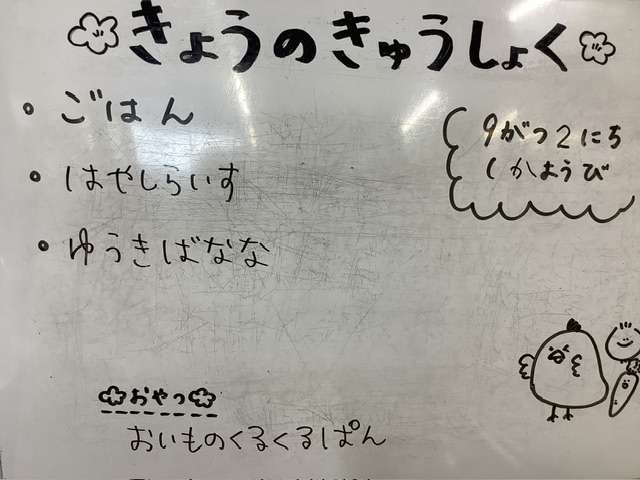 きょうのきゅうしょく
9がつ2にち
かようび
・ごはん
・はやしらいす
・ゆうきばなな
おやつ
おいものくるくるぱん